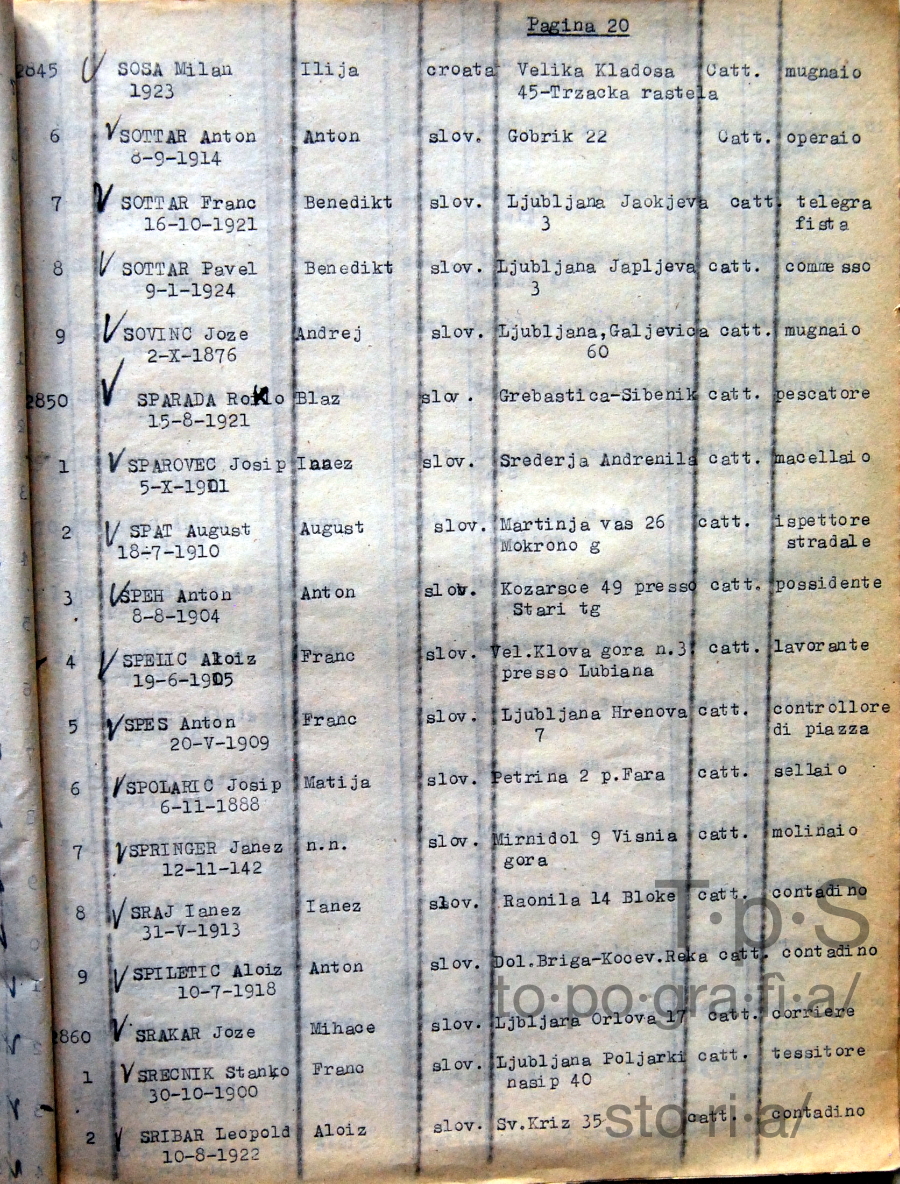 Pagina 20
2845 SOSA Milan Ilija croata Velika Kladosa Catt. mugnaio
1923 45-Trzacka rastela
6 SOTTAR Anton Anton slov. Gobrik 22 Catt. operaio
8-9-1914
7 SOTTAR Franc Benedikt slov. Ljubljana Jaokjeva catt. telegra
16-10-1921 3 fista
8 SOTTAR Pavel Benedikt slov. Ljubljana Japljeva catt. commesso
9-1-1924 3
9 SOVINC Joze Andrej slov. Ljubljana,Galjevica catt. mugnaio
2-X-1876 60
2850 SPARADA Rokko Blaz slov. Grebastica-Sibenik catt. pescatore
15-8-1921
1 SPAROVEC Josip slov. Srederja Andrenila catt. macellaio
5-X-1901
2 SPAT August August slov. Martinja vas 26 catt. ispettore
18-7-1910 Mokrono g stradale
3 SPEH Anton Anton slov. Kozarsce 49 presso catt. possidente
8-8-1904 Stari tg
4 SPELIC Aloiz Franc slov. Vel.Klova gora n.3 catt. lavorante
19-6-1905 presso Lubiana
5 SPES Anton Franc slov. Ljubljana Hrenova catt. controllore
20-V-1909 7 di piazza
6 SPOLARIC Josip Matija slov. Petrina 2 p.Fara catt. sellaio
6-11-1888
7 SPRINGER Janez n.n. slov. Mirnidol 9 Visnia catt. molinaio
12-11-142 gora
8 SRAJ Ianez Ianez slov. Raonila 14 Bloke catt. contadino
31-V-1913
9 SPILETIC Aloiz Anton slov. Dol.Briga-Kocev.Reka catt. contadino
10-7-1918
2860 SRAKAR Joze Mihace slov. Ljbljara Orlova 17 catt. corriere
1 SRECNIK Stanko Franc slov. Ljubljana Poljarki catt. tessitore
30-10-1900 nasip 40
2 SRIBAR Leopold Aloiz slov. Sv.Kriz 35 catt. contadino
10-8-1922
T·p·S
to·po·gra·fi·a/
sto·ri·a/